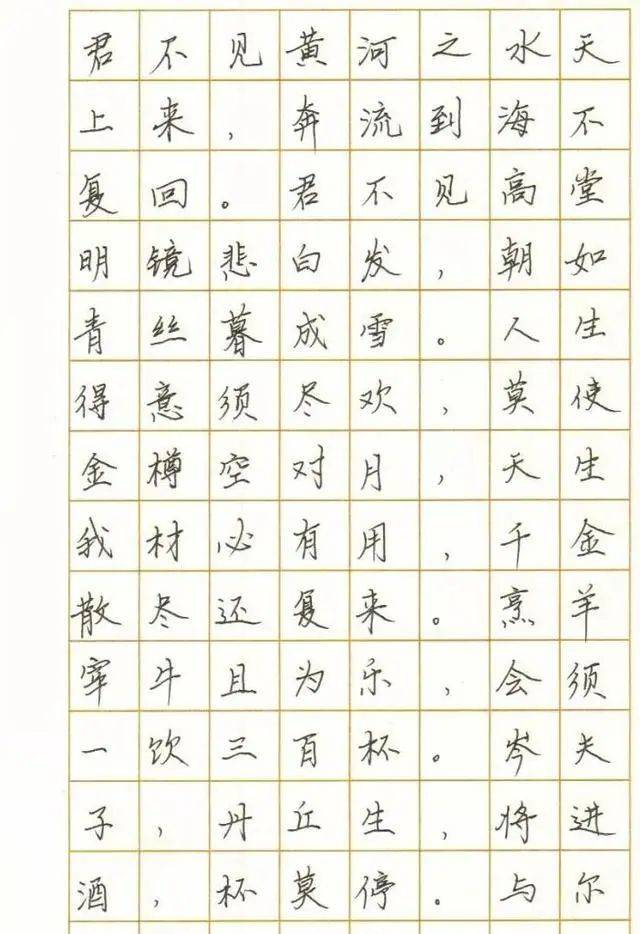 君不见黄河之水天
上来，奔流到海不
复回。君不见高堂
明镜悲白发，朝如
青丝暮成雪。人生
得意须尽欢，莫使
金樽空对月，天生
我材必有用，千金
散尽还复来。烹羊
宰牛且为乐，会须
一饮三百杯。岑夫
子，丹丘生，将进
酒，杯莫停。与尔